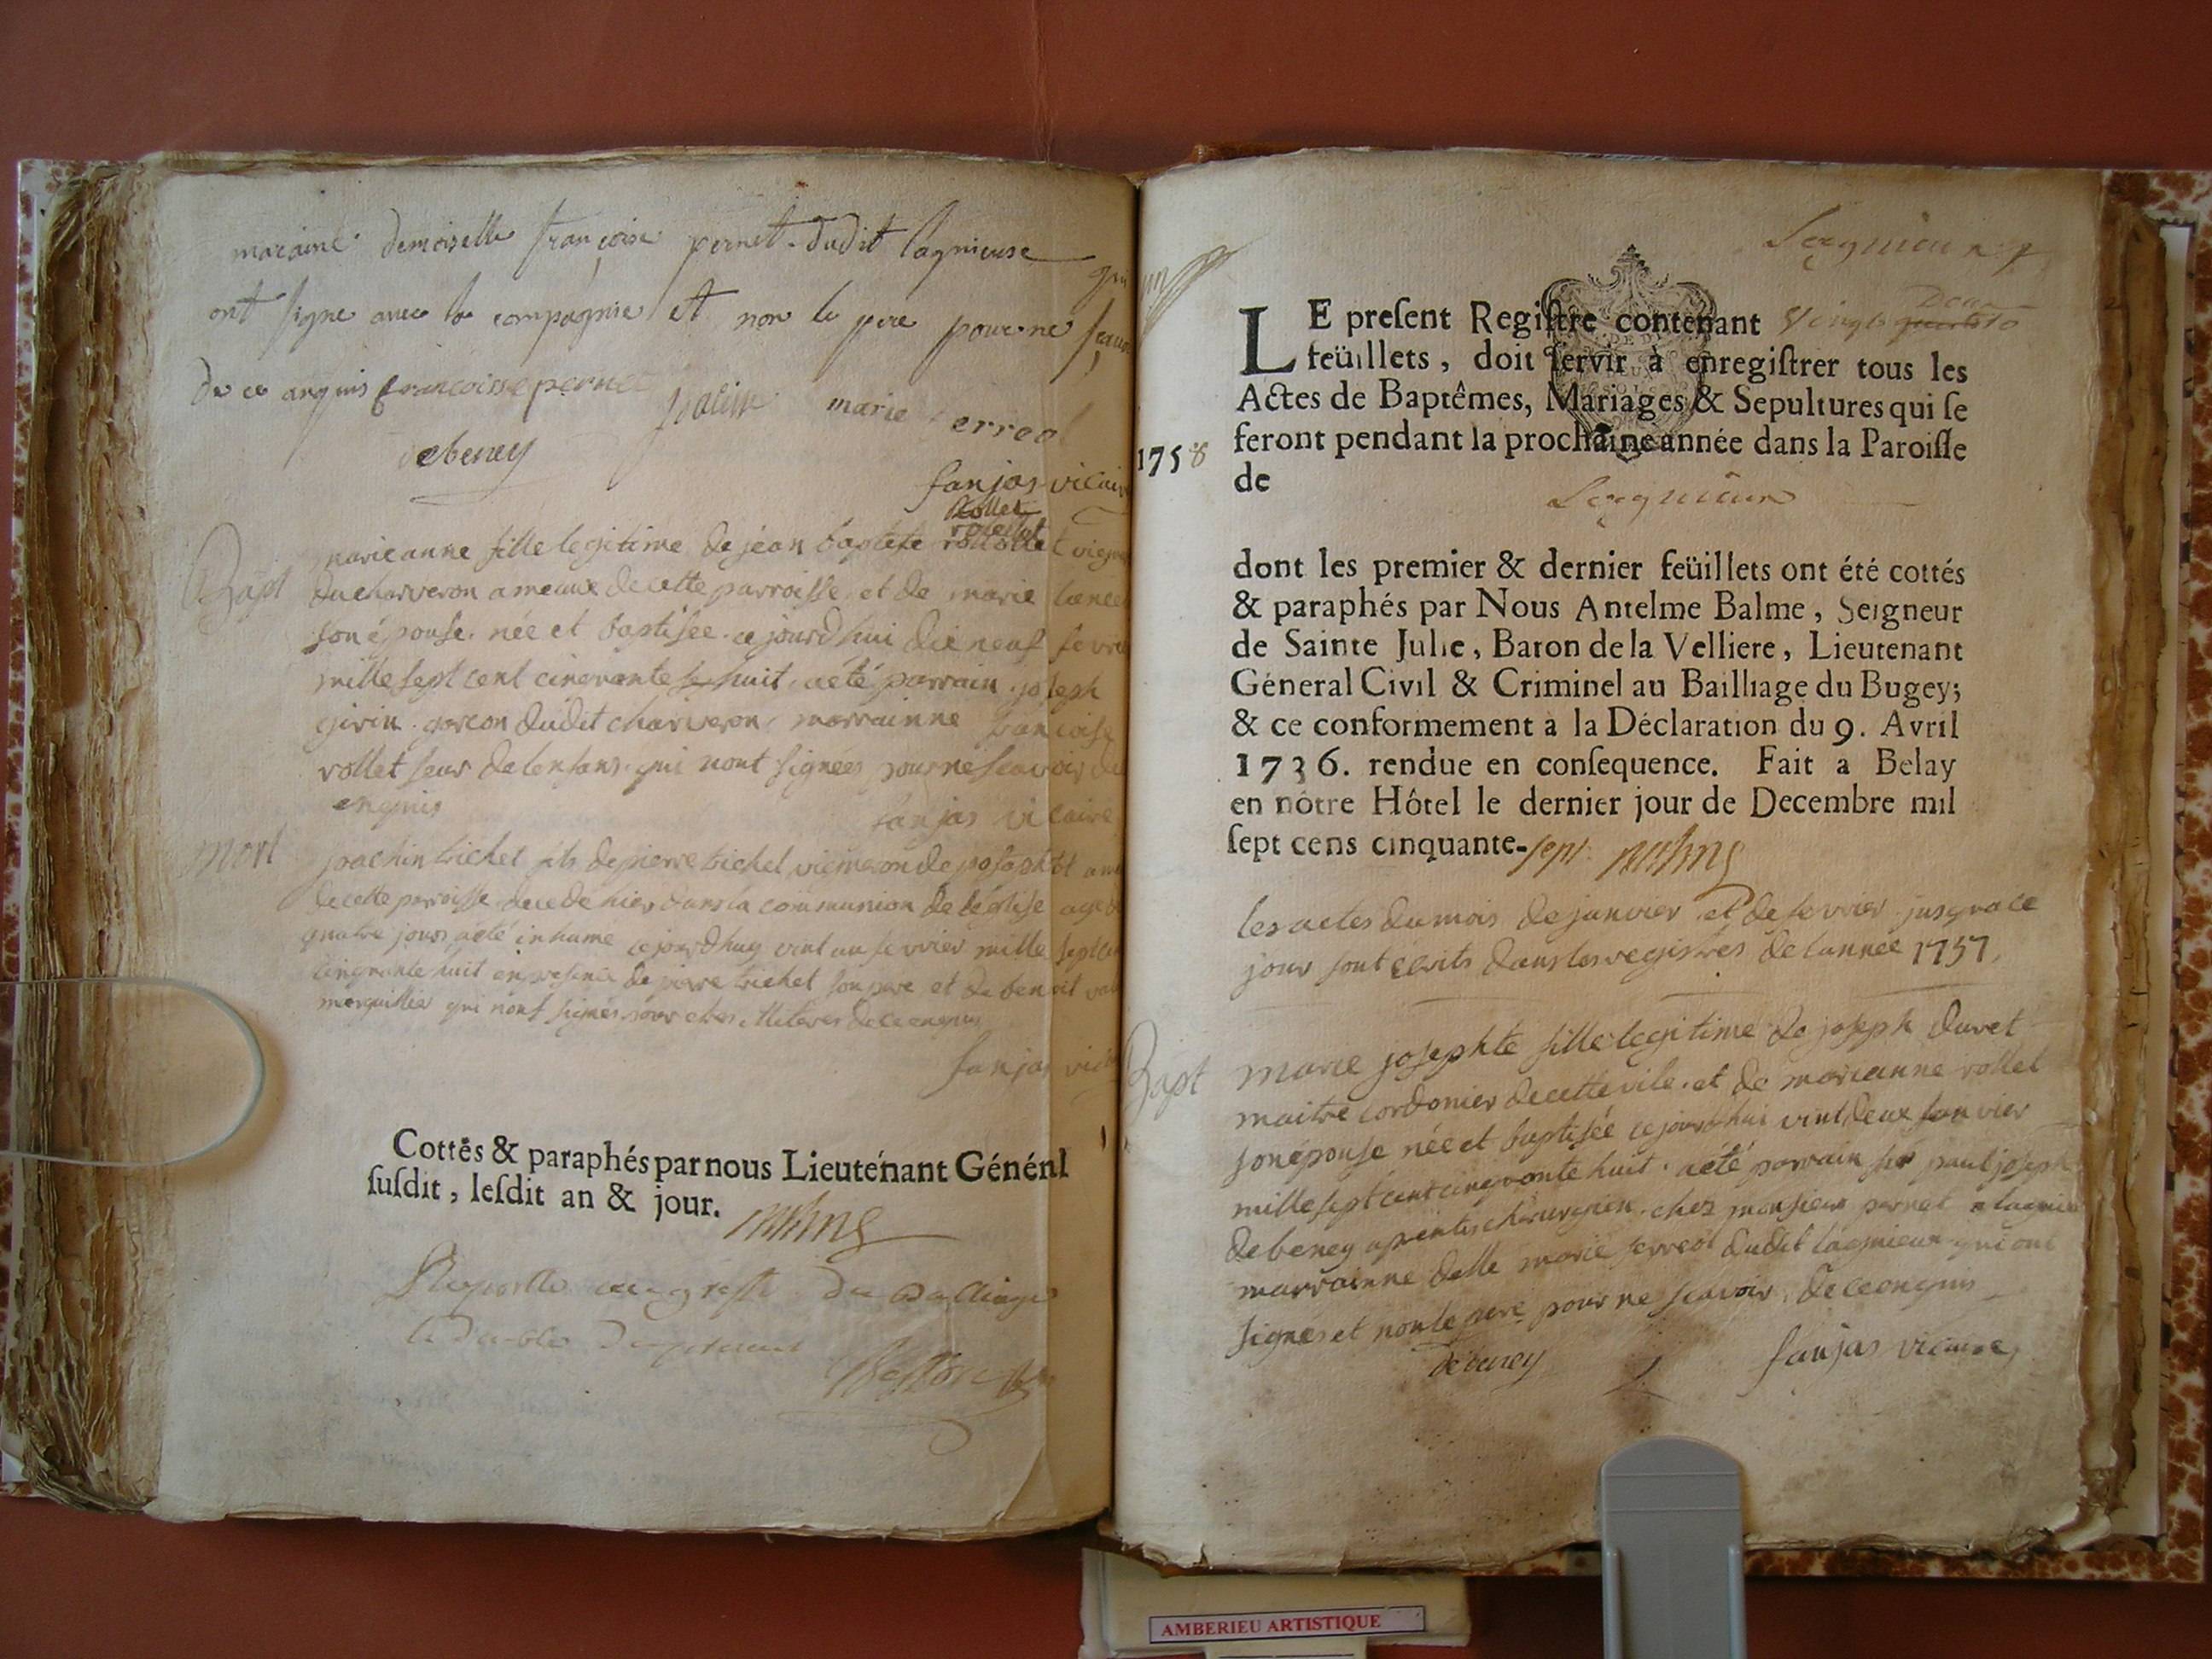 maraine demoiselle françoise pernet dudit lagnieuse qui
ont signe avec la compagnie et non le pere pour ne scavoir
de ce anquis francoisse pernet
marie ferreol
debeney
fanjas vicaire
Rollet
Bapt
marieanne fille legitime de jean baptiste rollet vigneron
du charveron ameaux de cette parroisse et de marie
son épouse. née et baptisée ce jourd'hui die neuf fevrier
mille sept cent cinquante huit. aété parrain joseph
girin garcon dudit charveron marrainne francoise
rollet seur de lenfans. qui nont signées pour ne scavoir de
enquis
fanjas vicaire
mort
joachin trichet fils de pierre trichet vigneron de posafol
de cette parroisse decedé hier dans la communion de l'église agé de
quatre jours aété inhumé ce jourdhuy vint un fevrier mille sept cent
cinquante huit en presence de pierre trichet son pere et de benoit
marguillier qui n'ont signés pour etre illiteres de ce enquis
fanjas vic
Cottés & paraphés par nous Lieutenant Génénl
ſuſdit, leſdit an & jour.
au greffe du Balliage
le double
Lagnieux
LE preſent Regiſtre contenant Vingt Deux
feüillets, doit ſervir à enregiſtrer tous les
Actes de Baptêmes, Mariages & Sepultures qui ſe
feront pendant la prochaine année dans la Paroiſſe
1758
de
Lagnieux
dont les premier & dernier feüillets ont été cottés
& paraphés par Nous Antelme Balme, Seigneur
de Sainte Julie, Baron de la Velliere, Lieutenant
Géneral Civil & Criminel au Bailliage du Bugey;
& ce conformement à la Déclaration du 9. Avril
1736. rendue en conſequence. Fait a Belay
en nôtre Hôtel le dernier jour de Decembre mil
ſept cens cinquante-sept
les actes du mois de janvier et de fevrier jusqua ce
jour sont ecrits dans les registres de lannée 1757.
Bapt
marie josephte fille legitime de joseph duret
maitre cordonier de cette vile. et de marieanne rollet
son épouse née et baptisée ce jourd'hui vint deux fanvier
mille sept cent cinquante huit. aété parrain sr paul joseph
debeney aprentis chirurgien chez monsieur pernet a lagnieu
marrainne delle marie ferreol dudit lagnieux qui ont
signés et non le pere pour ne scavoir de ce enquis
debeney
fanjas vicaire
AMBERIEU ARTISTIQUE